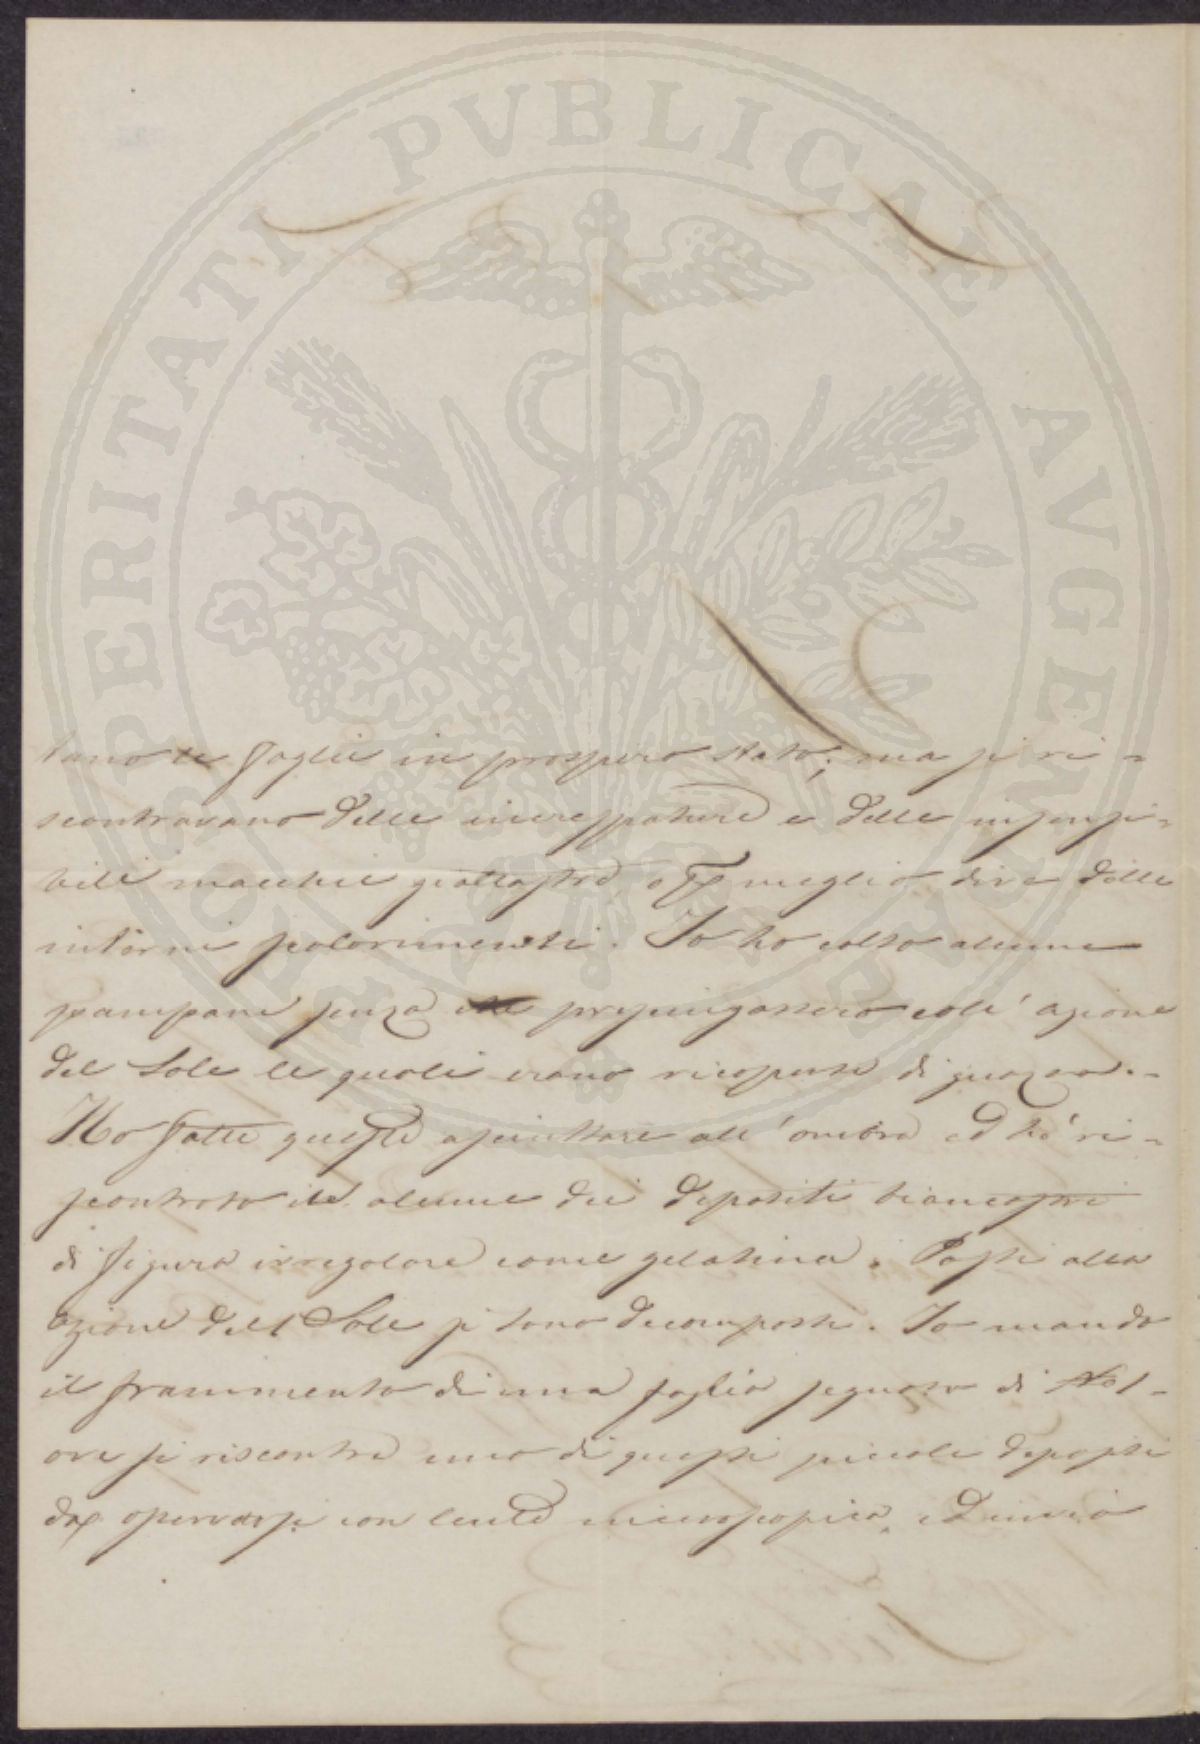 PROSPERITATI PVBLICAE AVGENDAE
tano le foglie in prospero stato; ma si ri=
scontravano delle increspature e delle insensi=
bili macchie giallastre, o p meglio dire delle
intorni scolorimenti. Io ho colto alcune
pampane senza che prosciugassero coll' azione
del Sole le quali erano ricoperte di guazza.=
Ho fatte queste asciuttare all' ombra ed ho ri=
scontrato in alcune dei depositi biancastri
di figura irregolare come gelatina. Posti alla
azione del Sole si sono decomposti. Io mando
il frammento di una foglia segnato di No 1-
ove si riscontra uno di questi piccoli depositi
da osservarsi con lente microscopica, ed invio